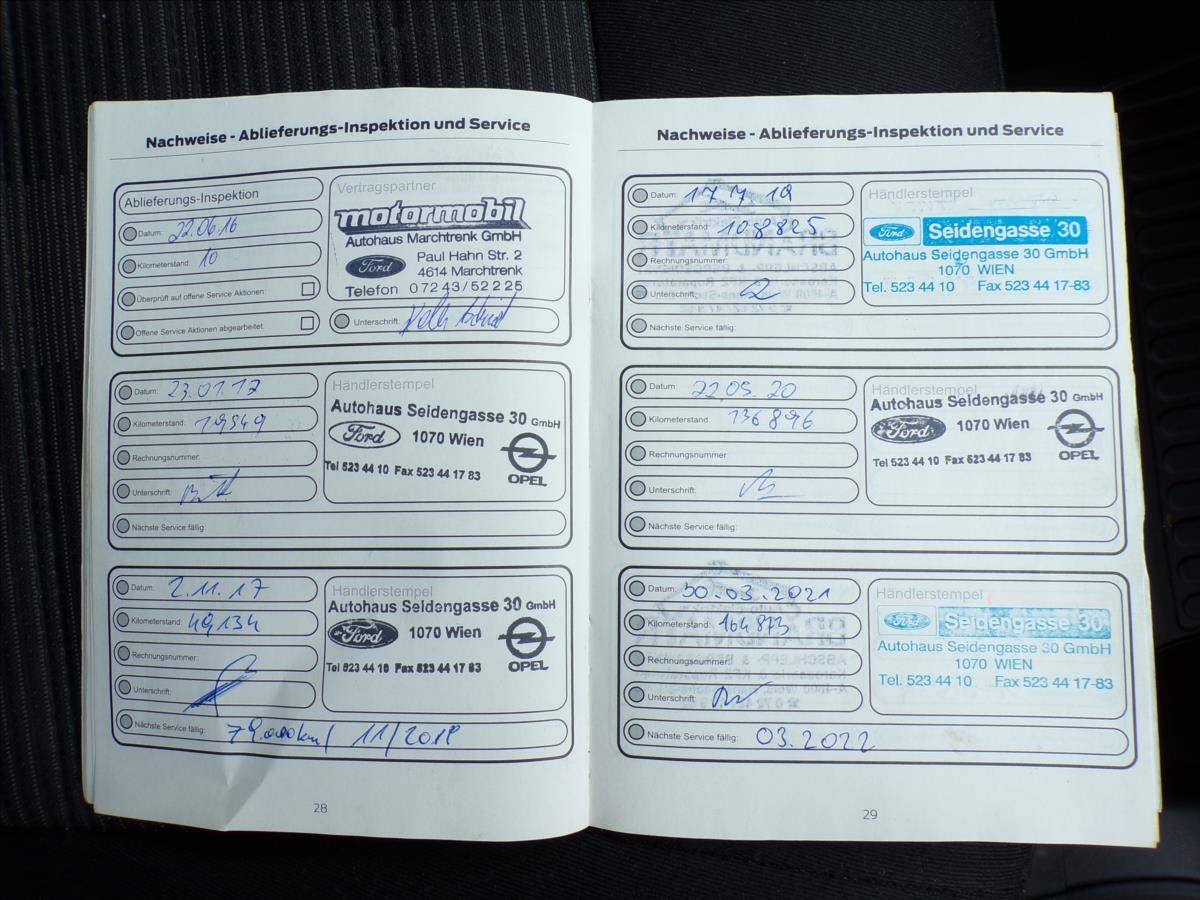 Nachweise - Ablieferungs-Inspektion und Service
Ablieferungs-Inspektion
Datum: 22.06.16
Kilometerstand: 10
Überprüft auf offene Service Aktionen:
Offene Service Aktionen abgearbeitet:
Vertragspartner
motormobil
Autohaus Marchtrenk GmbH
Ford
Paul Hahn Str. 2
4614 Marchtrenk
Telefon 07243/52225
Unterschrift:
Datum: 23.01.17
Kilometerstand: 19549
Rechnungsnummer:
Unterschrift:
Nächste Service fällig:
Händlerstempel
Autohaus Seidengasse 30 GmbH
Ford 1070 Wien
Tel 523 44 10 Fax 523 44 17 83
OPEL
Datum: 2.11.17
Kilometerstand: 49134
Rechnungsnummer:
Unterschrift:
Nächste Service fällig: 79.000km/ 11/2018
Händlerstempel
Autohaus Seidengasse 30 GmbH
Ford 1070 Wien
Tel 523 44 10 Fax 523 44 17 83
OPEL
28
Nachweise - Ablieferungs-Inspektion und Service
Datum: 17 7 19
Kilometerstand: 108825
Rechnungsnummer:
Unterschrift:
Nächste Service fällig:
Händlerstempel
Ford Seidengasse 30
Autohaus Seidengasse 30 GmbH
1070 WIEN
Tel. 523 44 10 Fax 523 44 17-83
Datum: 22.05.20
Kilometerstand: 136896
Rechnungsnummer:
Unterschrift:
Nächste Service fällig:
Händlerstempel
Autohaus Seidengasse 30 GmbH
Ford 1070 Wien
Tel 523 44 10 Fax 523 44 17 83
OPEL
Datum: 30.03.2021
Kilometerstand: 164873
Rechnungsnummer:
Unterschrift:
Nächste Service fällig: 03.2022
Händlerstempel
Ford Seidengasse 30
Autohaus Seidengasse 30 GmbH
1070 WIEN
Tel. 523 44 10 Fax 523 44 17-83
29